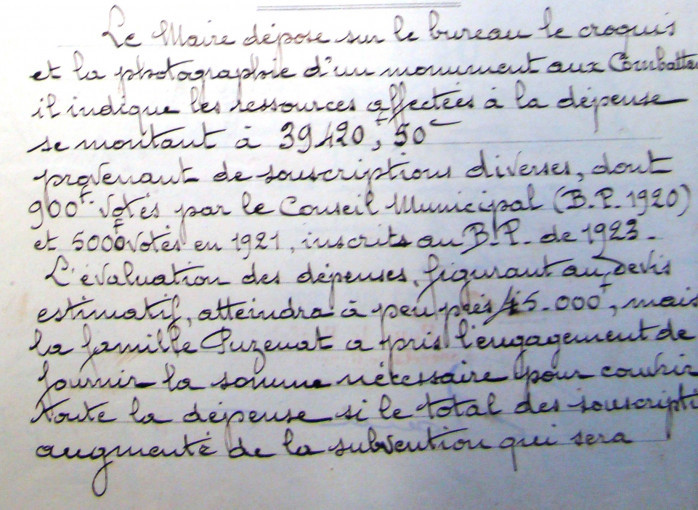 Le Maire dépose sur le bureau le croquis
et la photographie d'un monument aux Combatta
il indique les ressources affectées à la dépense
se montant à 39420f,50c
provenant de souscriptions diverses, dont
900f votés par le Conseil Municipal (B.P. 1920)
et 5000f votés en 1921, inscrits au B.P. de 1923.
L'évaluation des dépenses, figurant au devis
estimatif, atteindra à peu près 45.000f, mais
la famille Puzenat a pris l'engagement de
fournir la somme nécessaire pour couvrir
toute la dépense si le total des souscripti
augmenté de la subvention qui sera